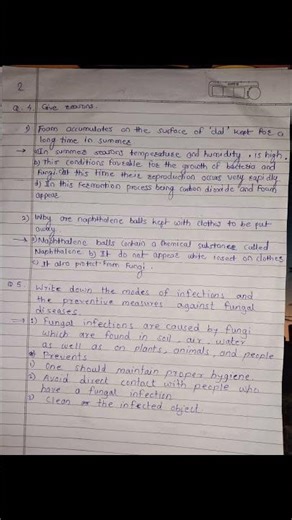 2
DATE
Q.4. Give reasons.
1) Foam accumulates on the surface of 'dal' kept for a
long time in summer
→ a) In summer seasons temperature and humidity, is high.
b) this conditions favorable for the growth of bacteria and
fungi. At this time there reproduction occurs very rapidly
d) In this fermation process being carbon dioxide and foam
appear
2) Why are naphthelene balls kept with clothes to be put
away
→ a) Naphthalene balls contain a chemical substance called
Naphthelene b) It do not appear white insect on clothes
c) It also protect from fungi.
Q 5. Write down the modes of infections and
the preventive measures against fungal
diseases.
→ 1) Fungal infections are caused by fungi
which are found in soil, air, water
as well as on plants, animals, and people
Prevents
1) One should maintain proper hygiene
2) Avoid direct contact with people who
have a fungal infection
Clean or the infected object